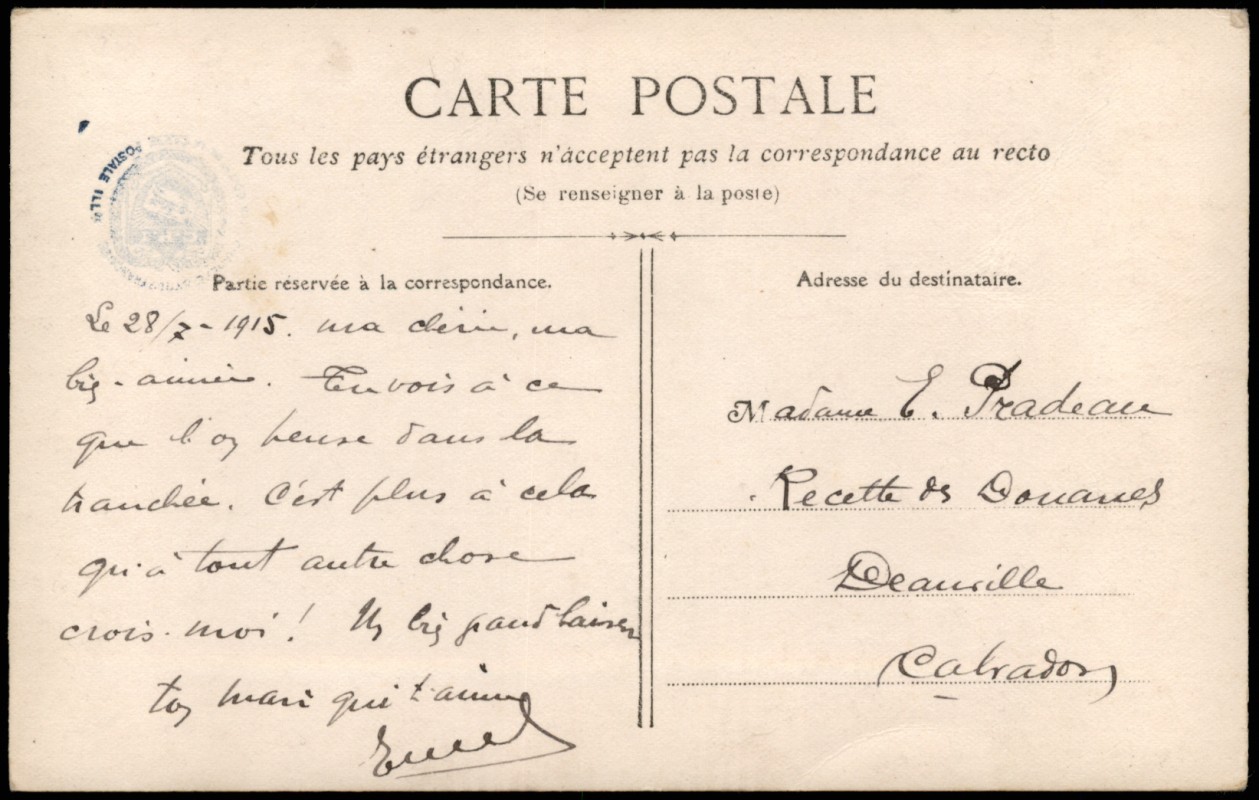 CARTE POSTALE
Tous les pays étrangers n'acceptent pas la correspondance au recto
(Se renseigner à la poste)
POSTALE ILL
Partie réservée à la correspondance.
Adresse du destinataire.
Le 28/7-1915. ma chérie, ma
big-aimée. Tu vois à ce
que l'on pense dans la
tranchée. C'est plus à cela
qu'à tout autre chose
crois-moi! Un big grand baiser
ton mari qui t'aime
Madame E. Pradeau
Recette des Douanes
Deauville
Calvados